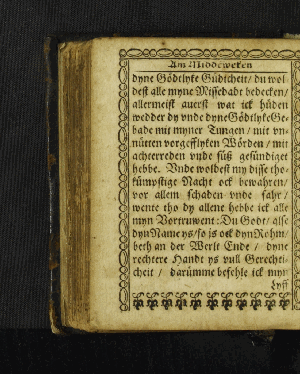 Am Middeweken
dyne Gödtlyke Güdicheit / du wol-
dest alle myne Missedadt bedecken /
allermeist auerst wat ick hüden
wedder dy vnde dyne Gödtlyke Ge-
bade mit myner Tungen / mit vn-
nütten vorgefflyken Wörden / mit
achterreden vnde süß gesündiget
hebbe. Vnde woldest my disse tho-
kümpstige Nacht ock bewahren /
vor allem schaden vnde fahr /
wente tho dy allene hebbe ick alle
myn Vortruwent: Du Godt / alse
dyn Name ys / so is ock dyn Rohm /
beth an der Werlt Ende / dyne
rechtere Handt ys vull Gerechti-
cheit / darümme befehle ick myn
Lyff